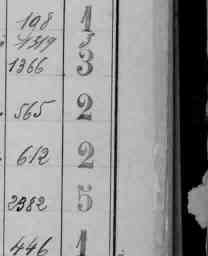 198 1
1319 3
1366 3
565 2
612 2
2382 5
446 1